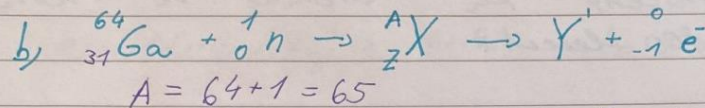 b) ⁶⁴₃₁Ga + ¹₀n → ᴬ_ZX → Y' + ⁰₋₁e⁻
A = 64+1 = 65